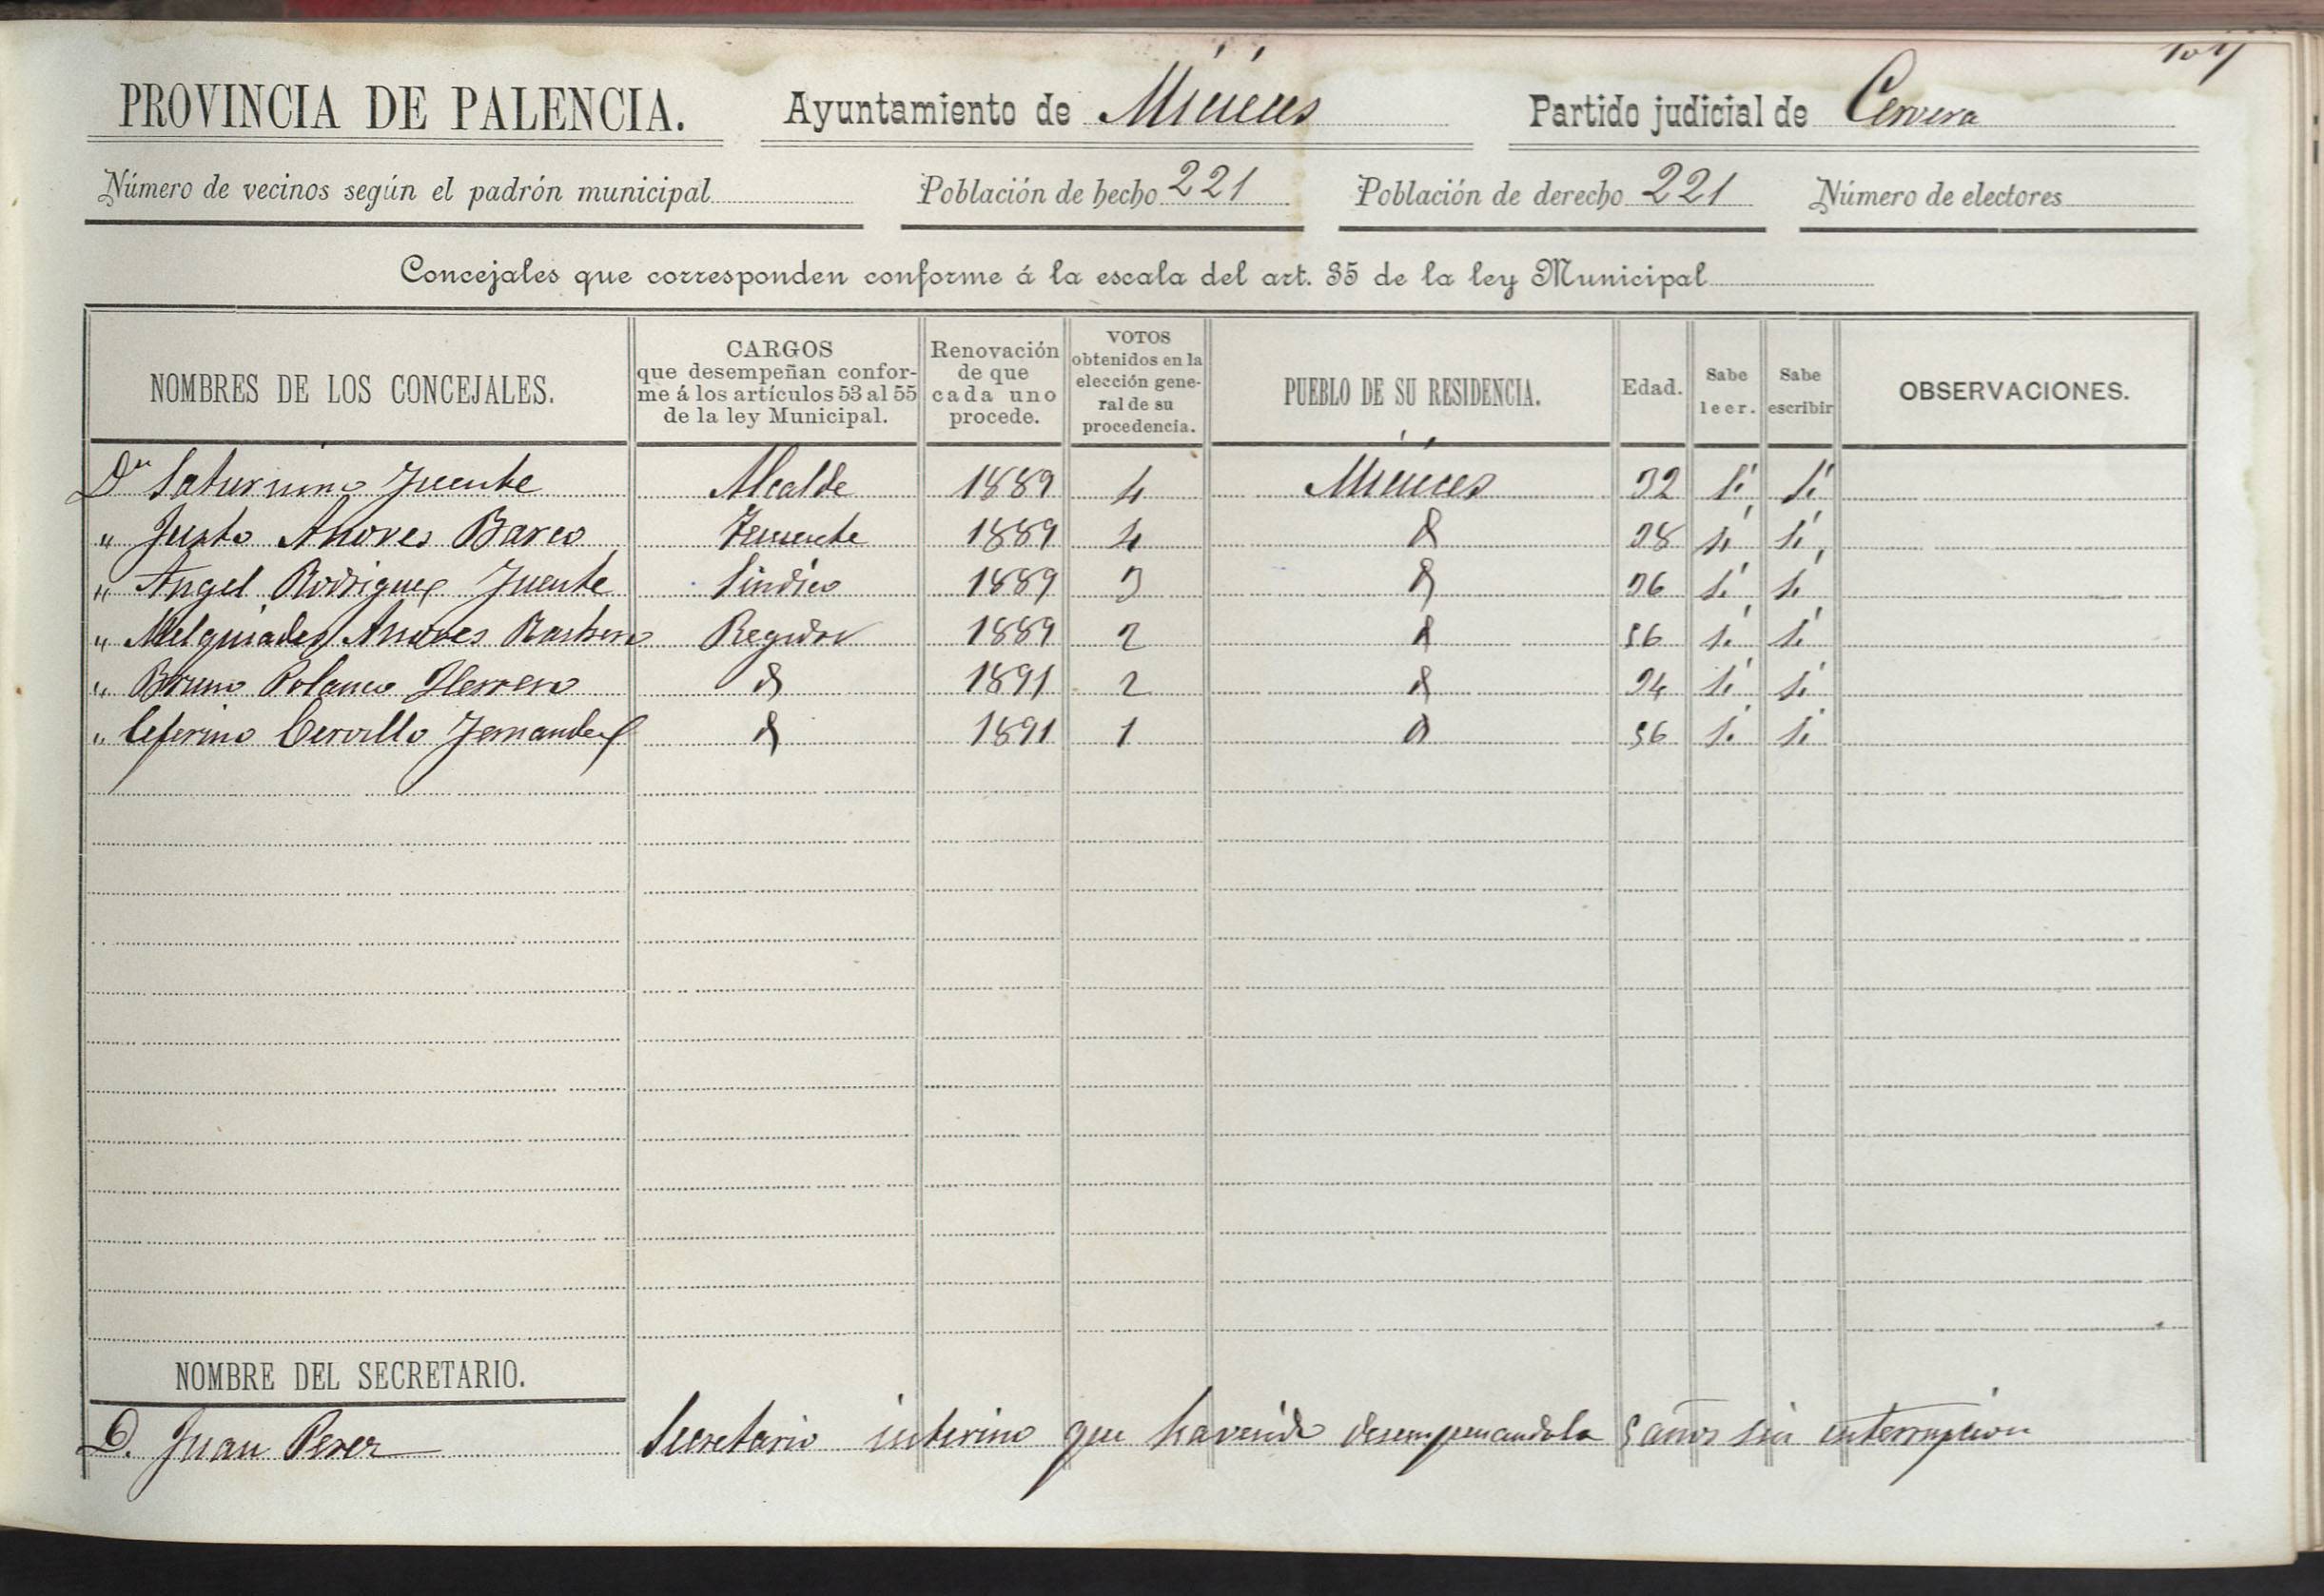 107
PROVINCIA DE PALENCIA. Ayuntamiento de Micieces Partido judicial de Cervera
Número de vecinos según el padrón municipal Población de hecho 221 Población de derecho 221 Número de electores
Concejales que corresponden conforme á la escala del art. 35 de la ley Municipal
NOMBRES DE LOS CONCEJALES. CARGOS que desempeñan conforme á los artículos 53 al 55 de la ley Municipal. Renovación de que cada uno procede. VOTOS obtenidos en la elección general de su procedencia. PUEBLO DE SU RESIDENCIA. Edad. Sabe leer. Sabe escribir OBSERVACIONES.
Dn Saturnino Fuente Alcalde 1889 4 Micieces 32 Si Si
" Justo Amores Barco Teniente 1889 4 38 si si
" Angel Rodriguez Fuente Sindico 1889 3 36 si si
" Melquiades Regidor 1889 2 56 si si
" Bruno Polanco Herrero 1891 2 34 si si
" Ceferino Cervillo Fernandez 1891 1 56 si si
NOMBRE DEL SECRETARIO.
D. Juan Perez Secretario interino que ha venido desempeñandola 5 años sin interrupcion